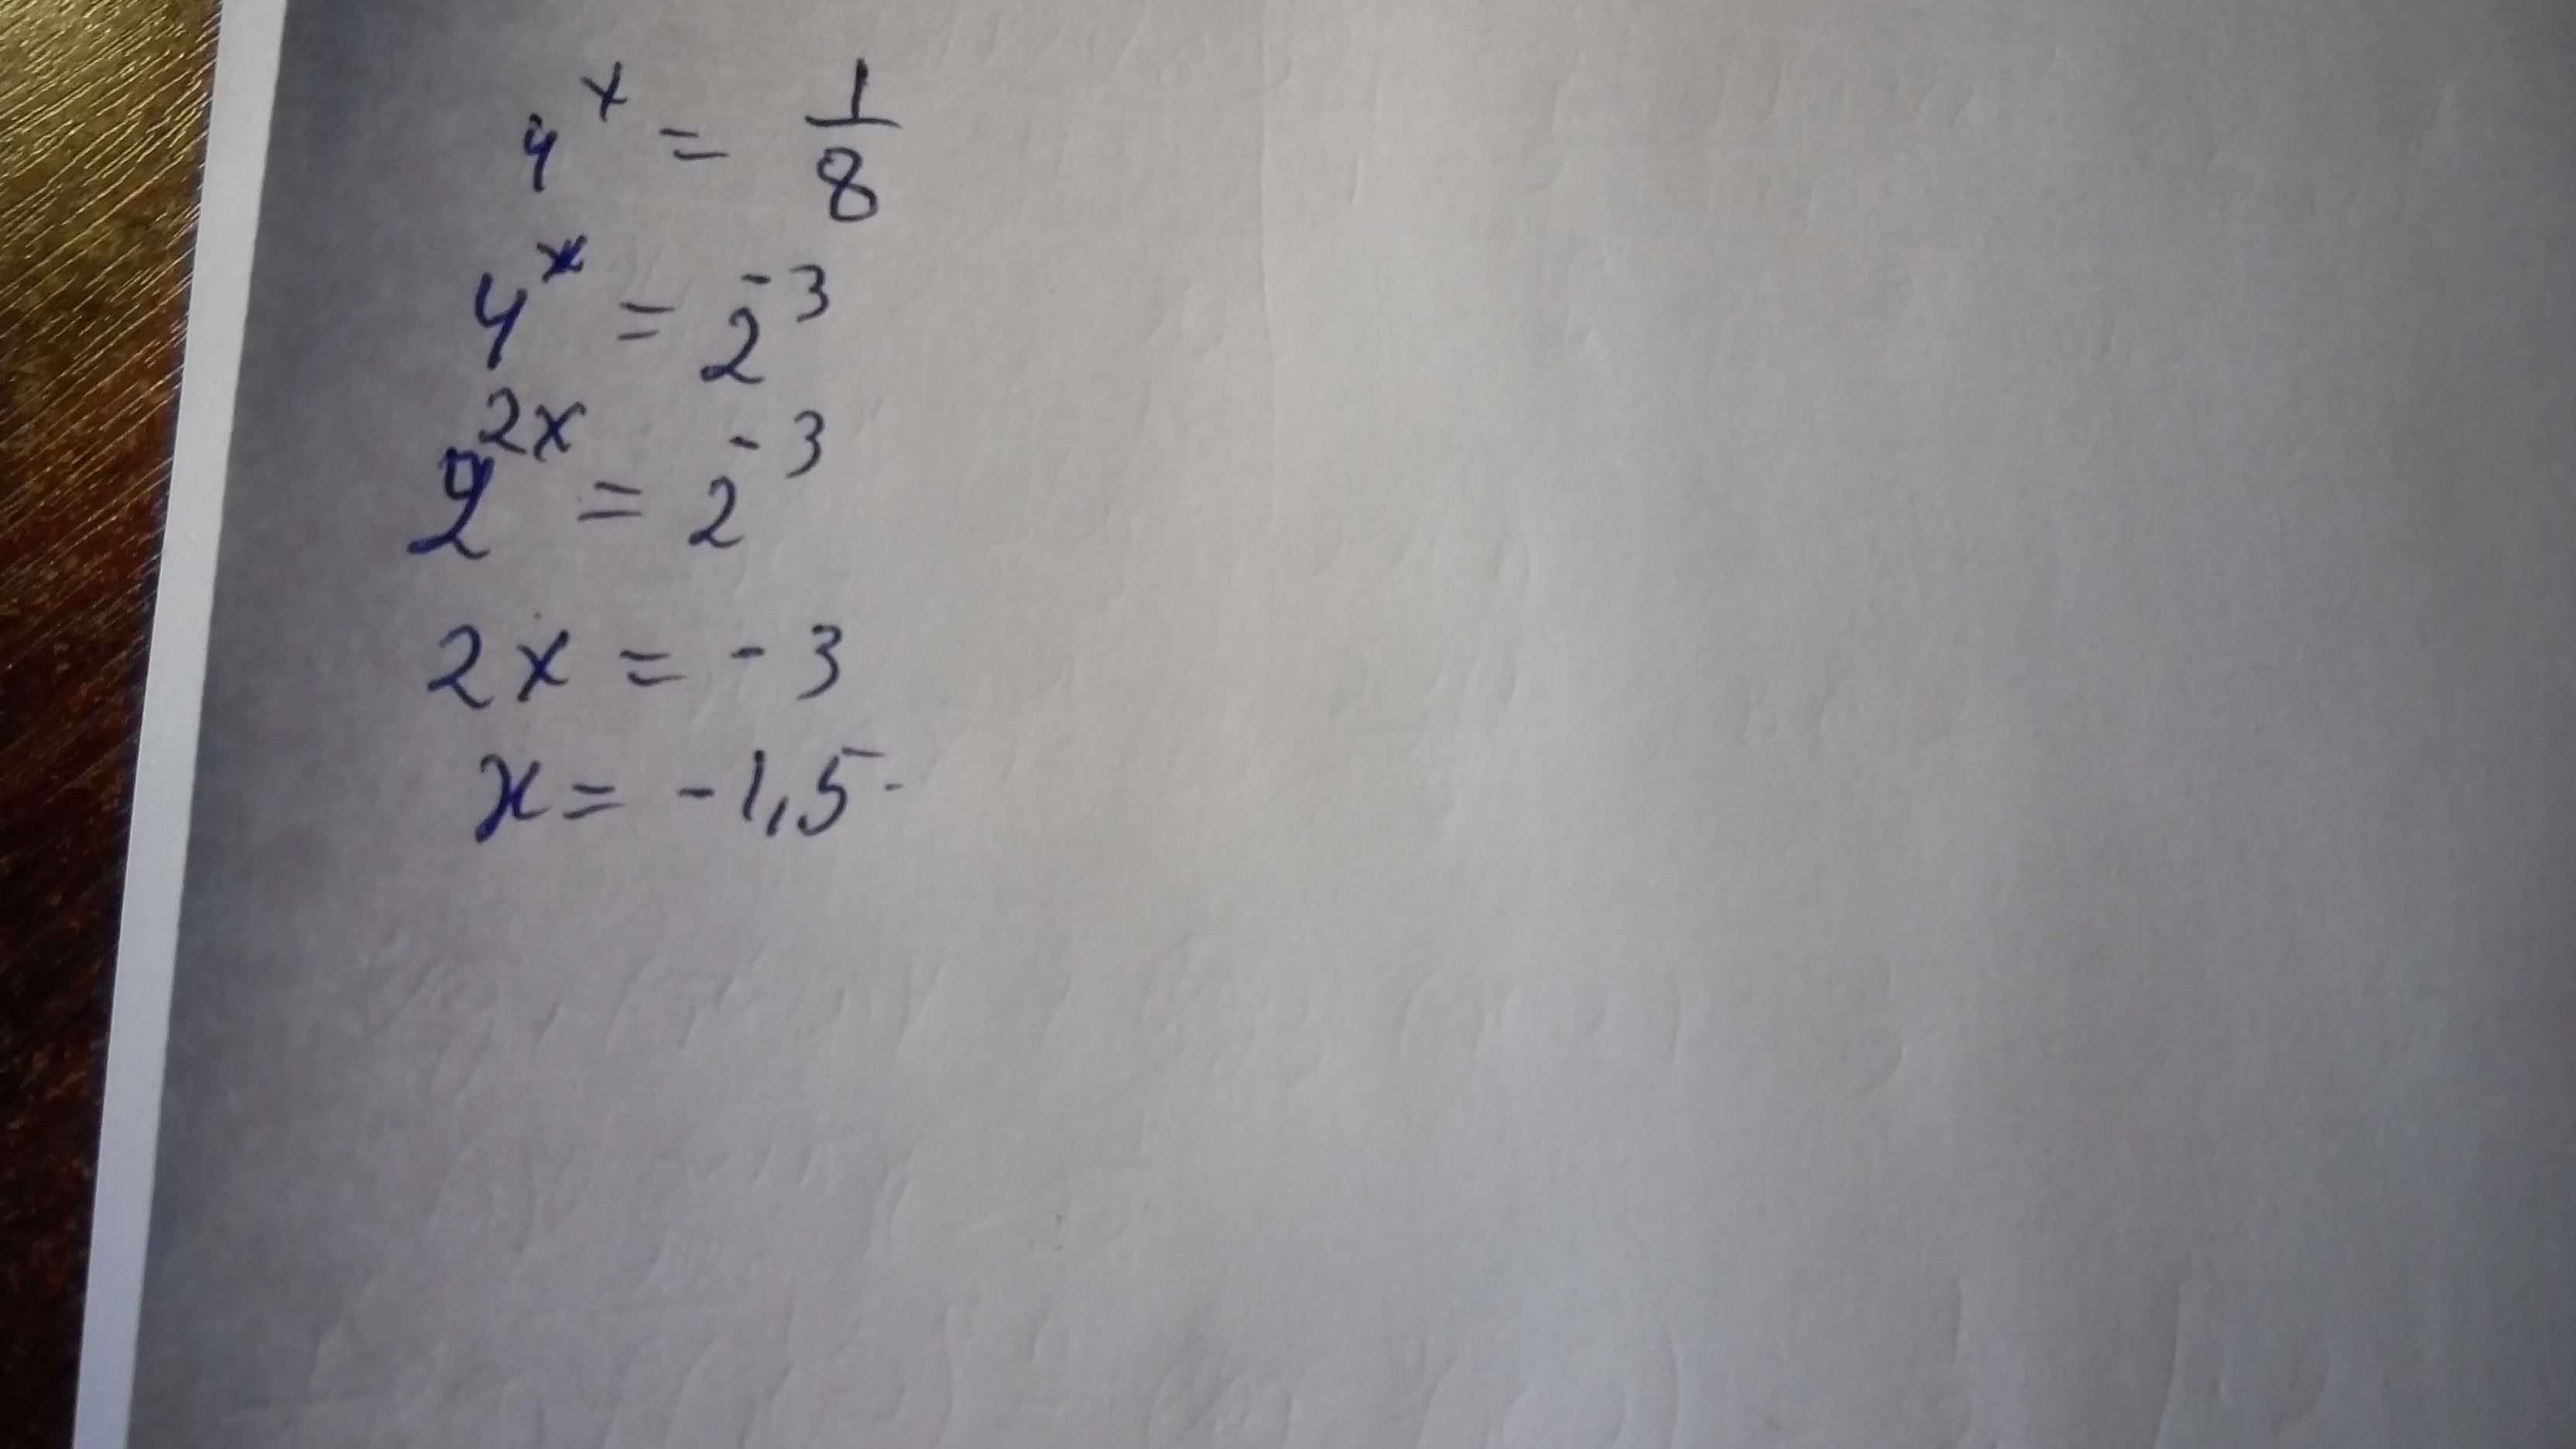 4^x = 1/8
4^x = 2^-3
2^2x = 2^-3
2x = -3
x = -1,5